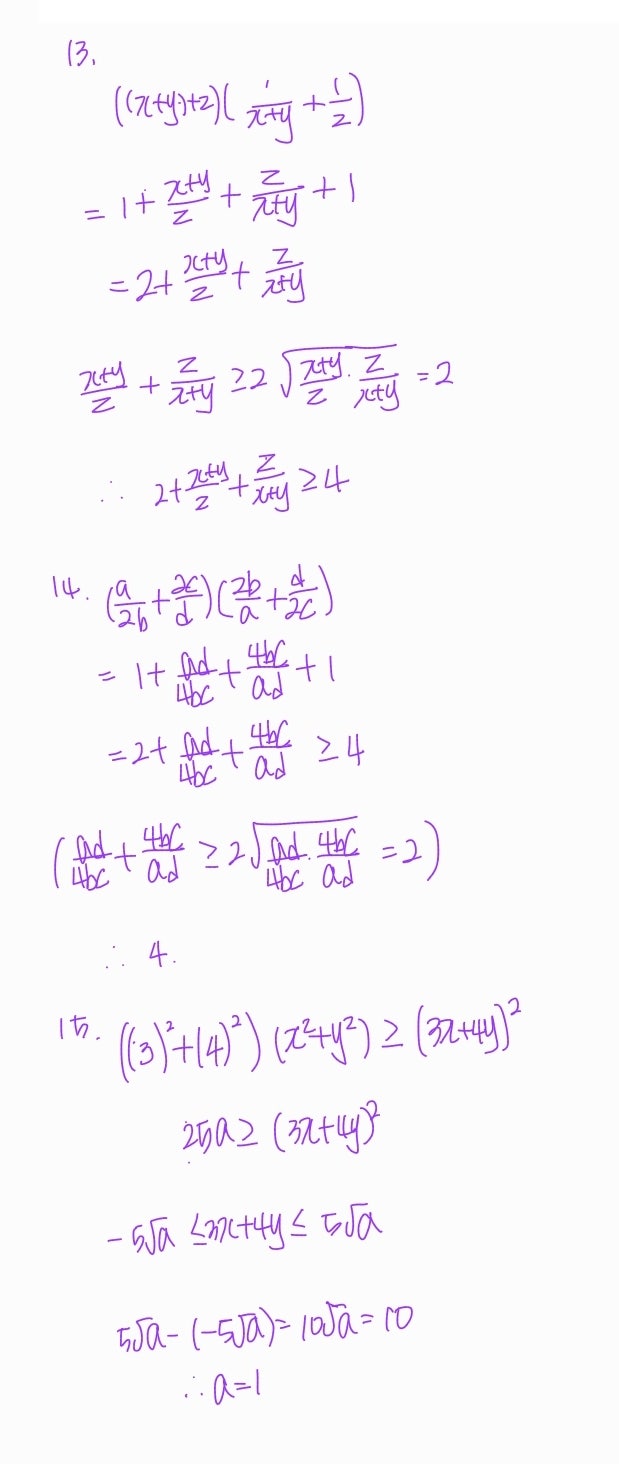 13.
((x+y)+z)(1/(x+y) + 1/z)
= 1 + (x+y)/z + z/(x+y) + 1
= 2 + (x+y)/z + z/(x+y)
(x+y)/z + z/(x+y) ≥ 2√((x+y)/z · z/(x+y)) = 2
∴ 2 + (x+y)/z + z/(x+y) ≥ 4
14. (a/2b + 2c/d)(2b/a + d/2c)
= 1 + ad/4bc + 4bc/ad + 1
= 2 + ad/4bc + 4bc/ad ≥ 4
(ad/4bc + 4bc/ad ≥ 2√(ad/4bc · 4bc/ad) = 2)
∴ 4.
15. ((3)²+(4)²)(x²+y²) ≥ (3x+4y)²
25a ≥ (3x+4y)²
-5√a ≤ 3x+4y ≤ 5√a
5√a - (-5√a) = 10√a = 10
∴ a=1